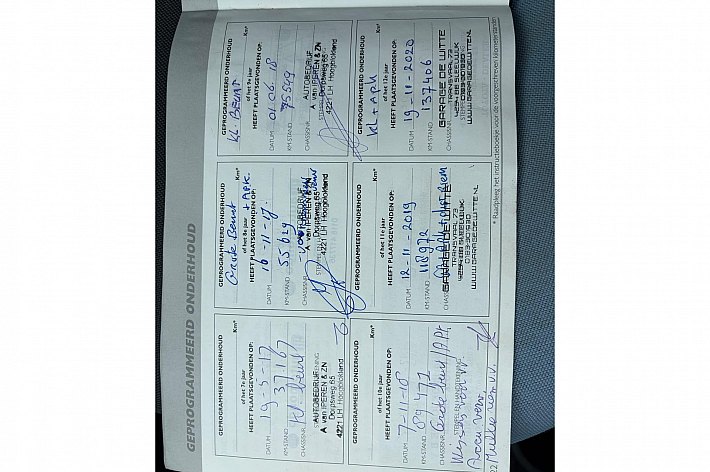 GEPROGRAMMEERD ONDERHOUD
GEPROGRAMMEERD ONDERHOUD
Km*
of het 7e jaar
HEEFT PLAATSGEVONDEN OP:
DATUM 19-5-17
KM-STAND 37167
CHASSISNR.
kl beurt
AUTOBEDRIJF
A van IPEREN & ZN
Dorpsweg 65
4221 LH Hoogblokland
GEPROGRAMMEERD ONDERHOUD
Grote Beurt + APK
Km*
of het 8e jaar
HEEFT PLAATSGEVONDEN OP:
DATUM 16-11-17
KM-STAND 55629
CHASSISNR.
A van IPEREN & ZN
Dorpsweg 65
4221 LH Hoogblokland
GEPROGRAMMEERD ONDERHOUD
KL BEURT
Km*
of het 9e jaar
HEEFT PLAATSGEVONDEN OP:
DATUM 01-06-18
KM-STAND 75549
CHASSISNR.
AUTOBEDRIJF
A van IPEREN & ZN
Dorpsweg 65
4221 LH Hoogblokland
GEPROGRAMMEERD ONDERHOUD
Km*
of het 10e jaar
HEEFT PLAATSGEVONDEN OP:
DATUM 7-11-18
KM-STAND 89471
CHASSISNR.
Grote beurt/APK
GEPROGRAMMEERD ONDERHOUD
Km*
of het 11e jaar
HEEFT PLAATSGEVONDEN OP:
DATUM 12-11-2019
KM-STAND 118972
CHASSISNR.
GARAGE DE WITTE
TRANSVAAL 73
4254 SB SLEEUWIJK
WWW.GARAGEDEWITTE.NL
GEPROGRAMMEERD ONDERHOUD
Km*
of het 12e jaar
HEEFT PLAATSGEVONDEN OP:
DATUM 19-11-2020
KM-STAND 137406
KL + APK
CHASSISNR.
GARAGE DE WITTE
TRANSVAAL 73
WWW.GARAGEDEWITTE.NL
* Raadpleeg het instructieboekje voor de voorgeschreven kilometerstanden